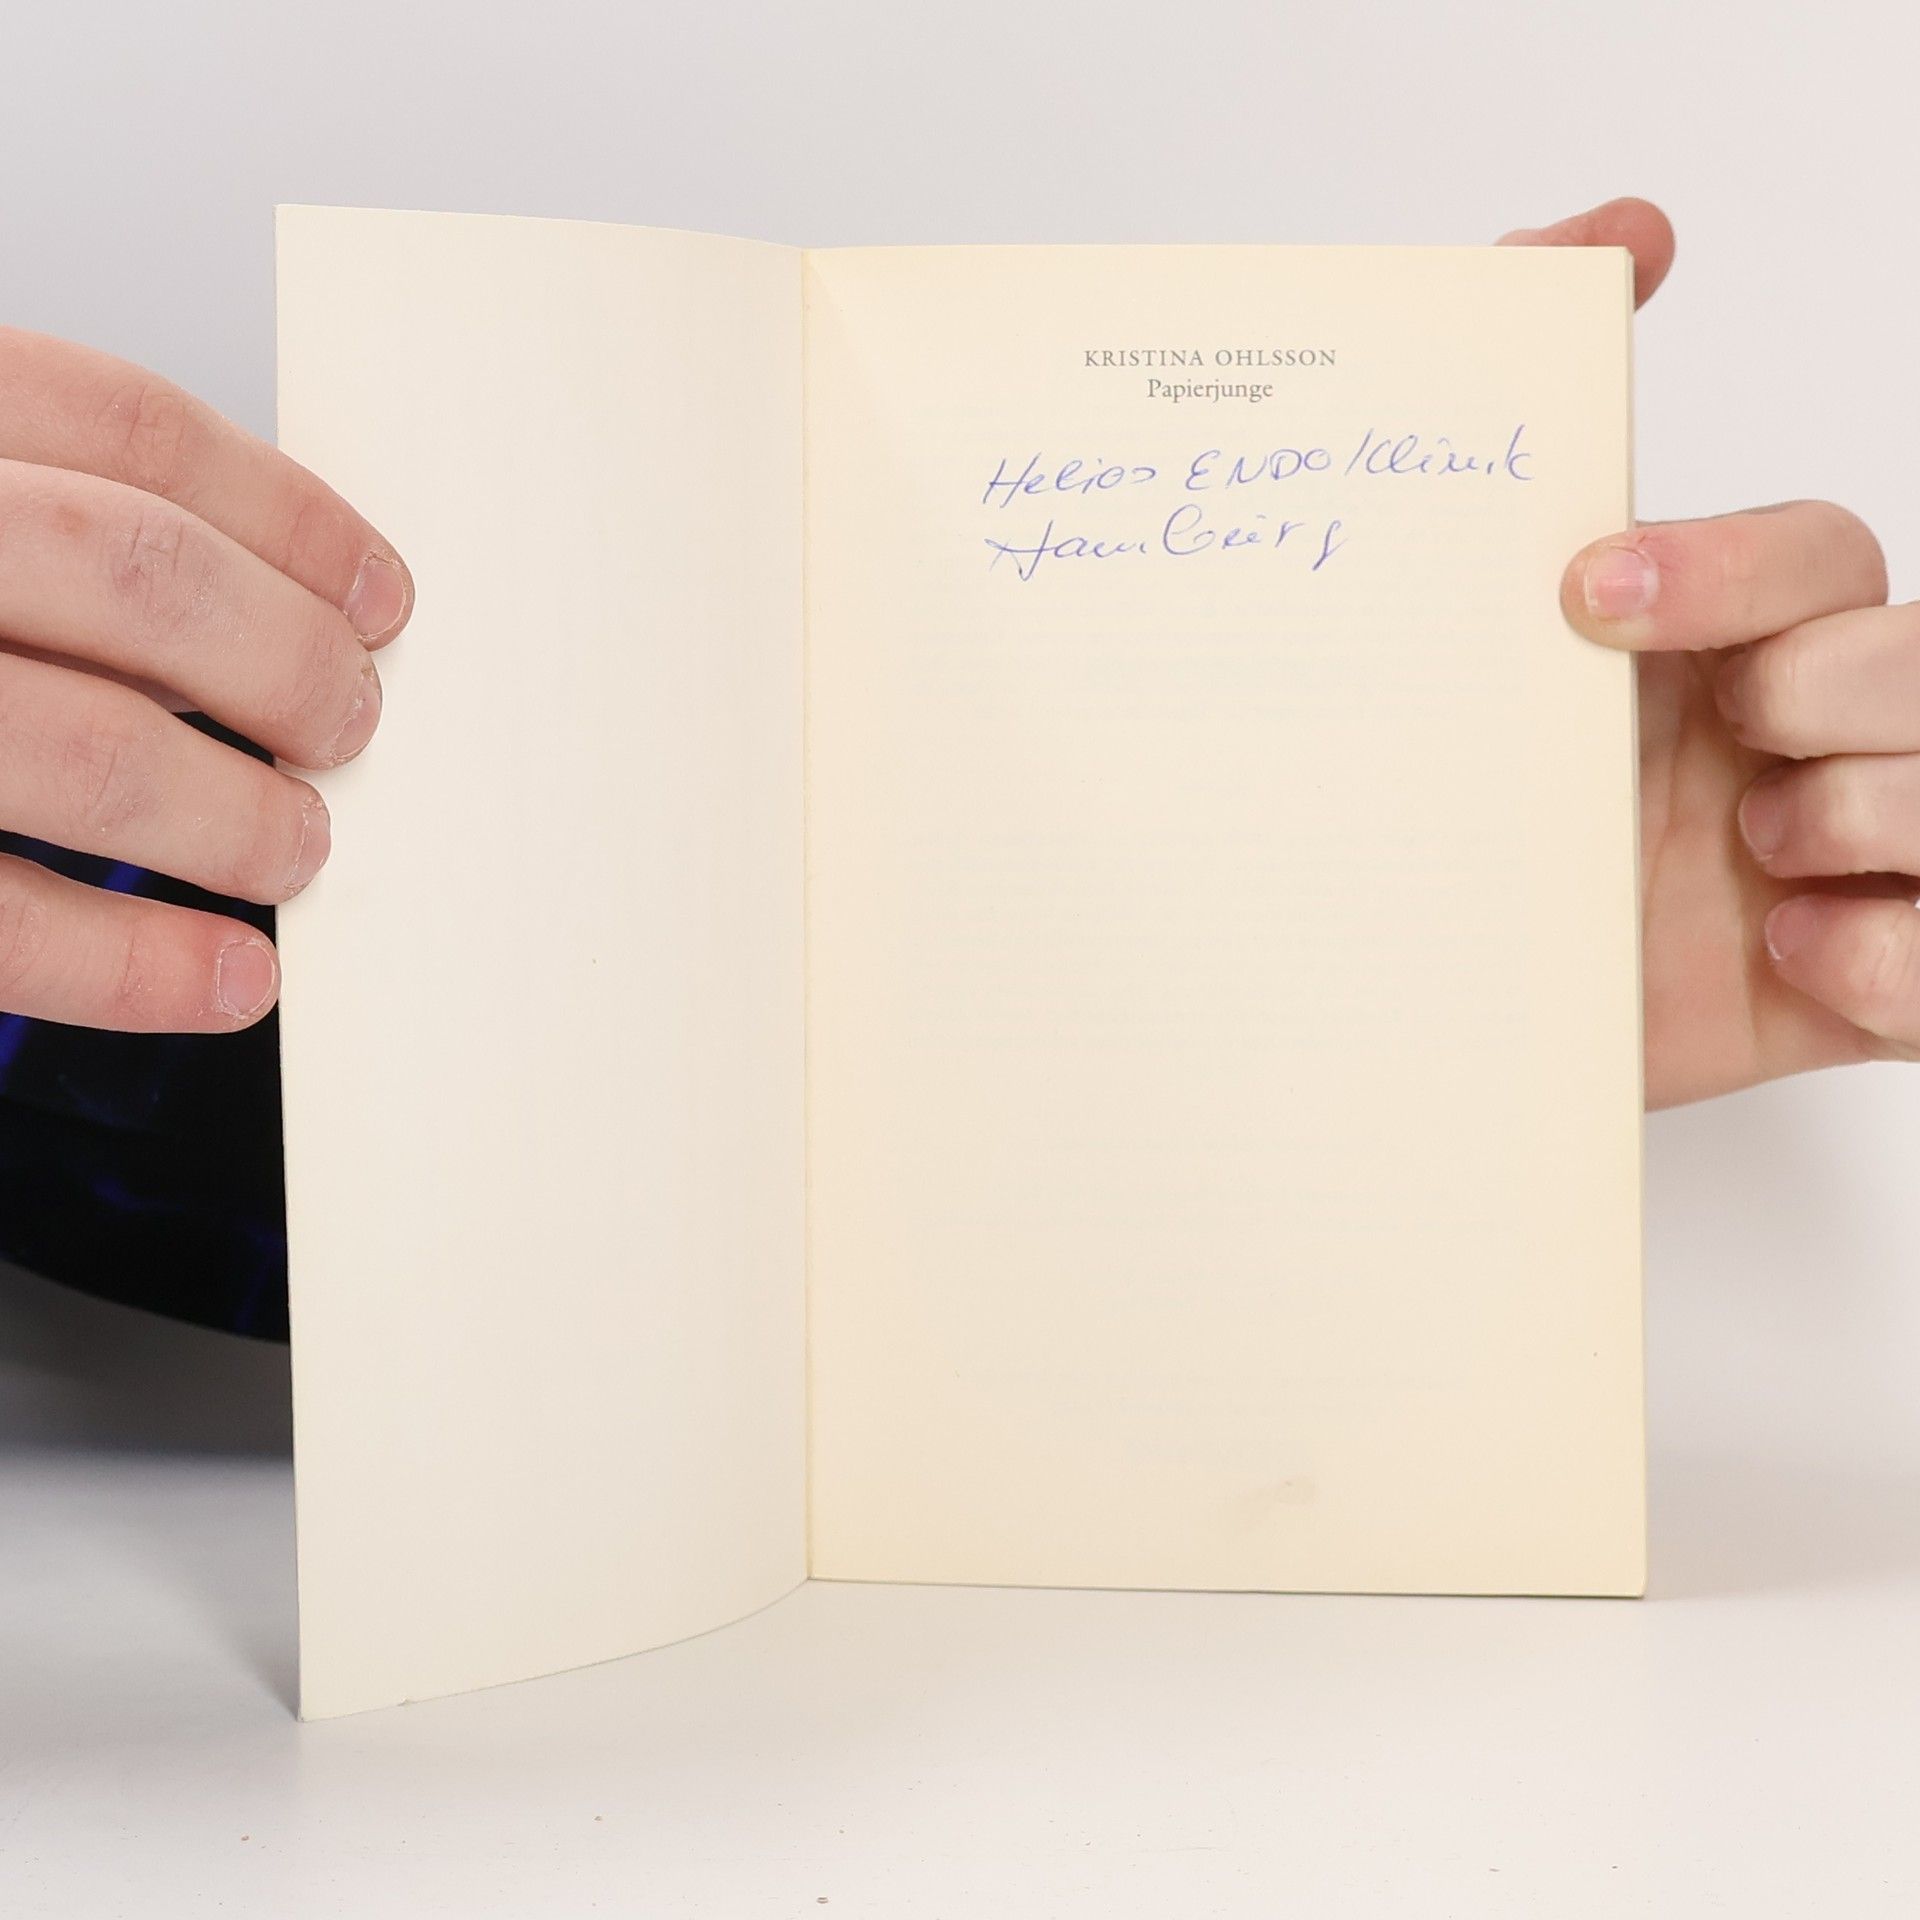 KRISTINA OHLSSON
Papierjunge
Helios ENDO Klinik
Hamburg